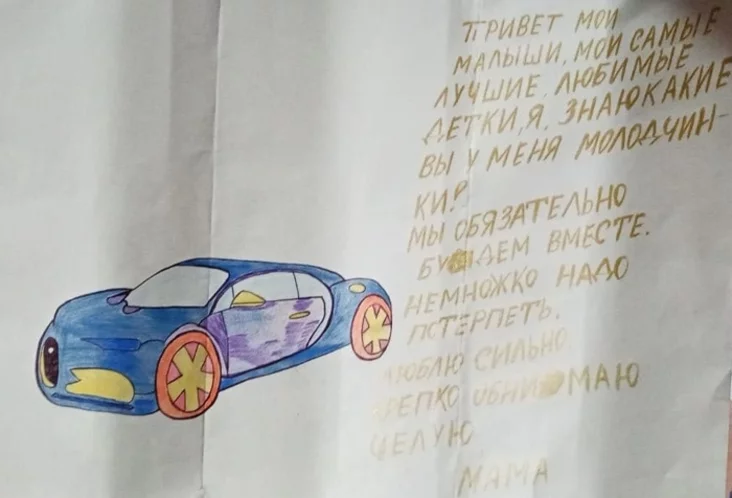 ПРИВЕТ МОИ
МАЛЫШИ, МОИ САМЫЕ
ЛУЧШИЕ, ЛЮБИМЫЕ
ДЕТКИ, Я. ЗНАЮ КАКИЕ
ВЫ У МЕНЯ МОЛОДЧИН-
КИ!
МЫ ОБЯЗАТЕЛЬНО
БУДЕМ ВМЕСТЕ.
НЕМНОЖКО НАДО
ПОТЕРПЕТЬ.
ЛЮБЛЮ СИЛЬНО
КРЕПКО ОБНИМАЮ
ЦЕЛУЮ
МАМА